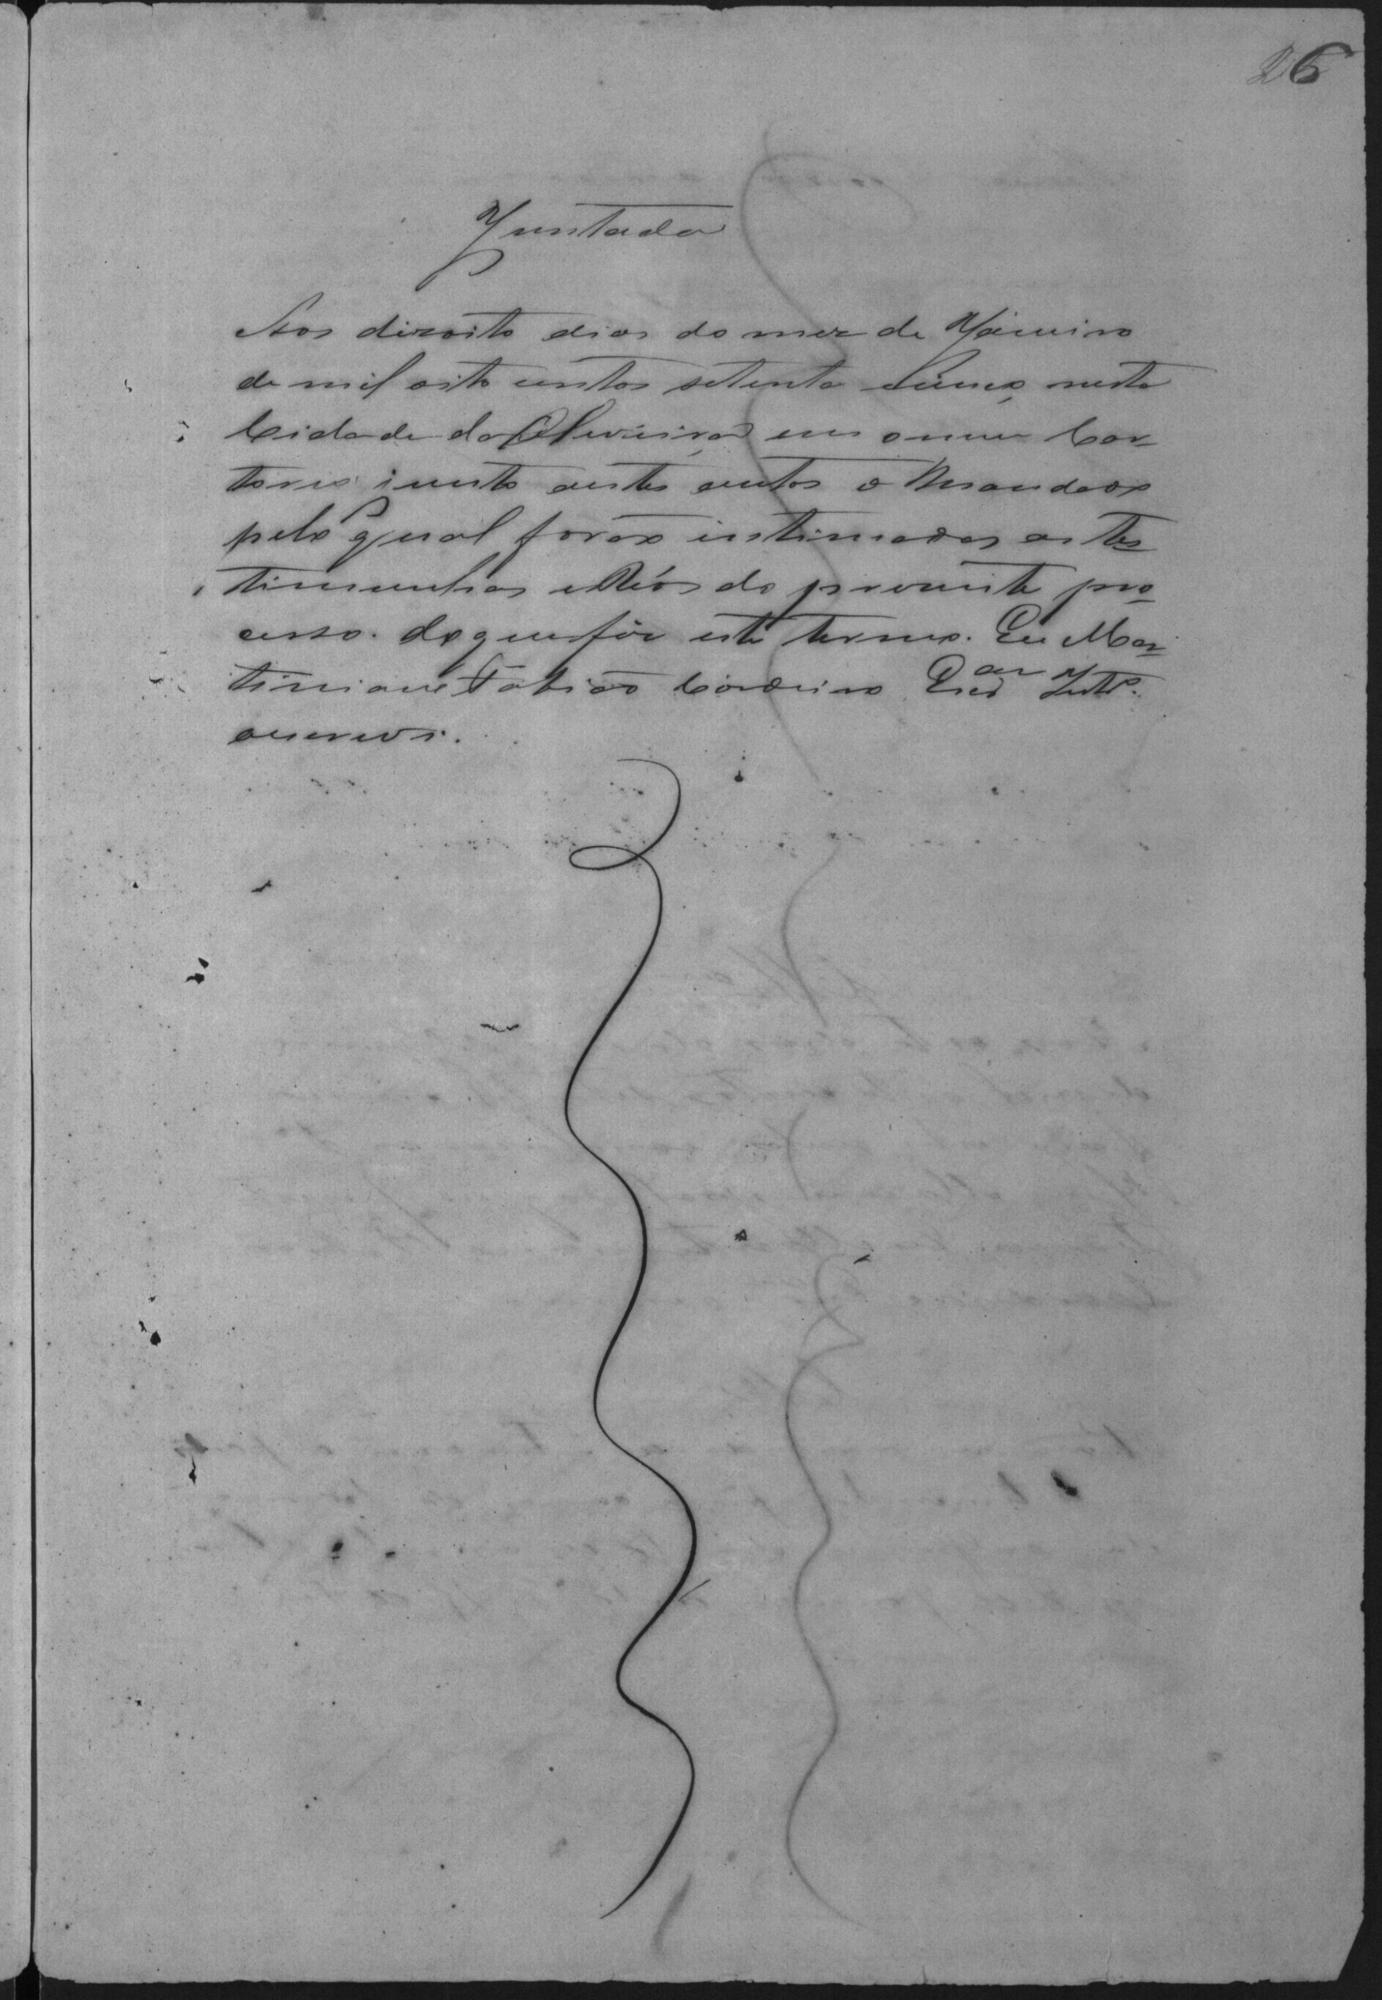 26
Juntada
Aos dizoito dias do mez de Janeiro
de mil oito centos setenta e cinco nesta
Cidade da Oliveira em o meu Car-
torio junto aestes autos o Mandado
pelo qual forão intimadas as tes-
timunhas e Réos do presente pro-
cesso. do que fiz este termo. Eu Mar-
timiano Fabião Cordeiro Escram Intro.
o escrevi.